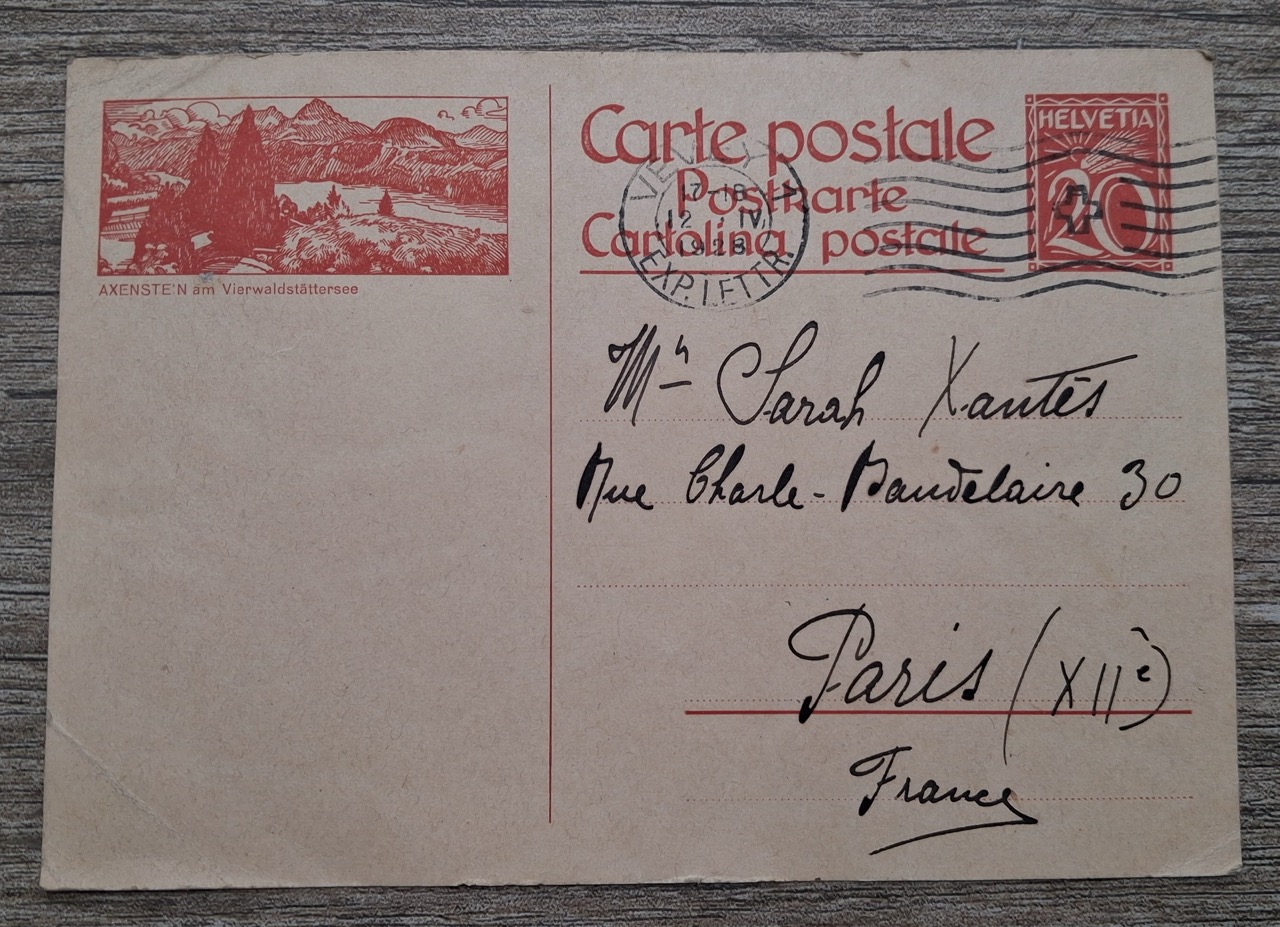 Carte postale
Postkarte
Cartolina postale
HELVETIA
20
VEVEY 1
17-18
12 IV
1928
EXP. LETTR.
AXENSTEIN am Vierwaldstättersee
Sarah Xantès
Rue Charle-Baudelaire 30
Paris (XIIè)
France